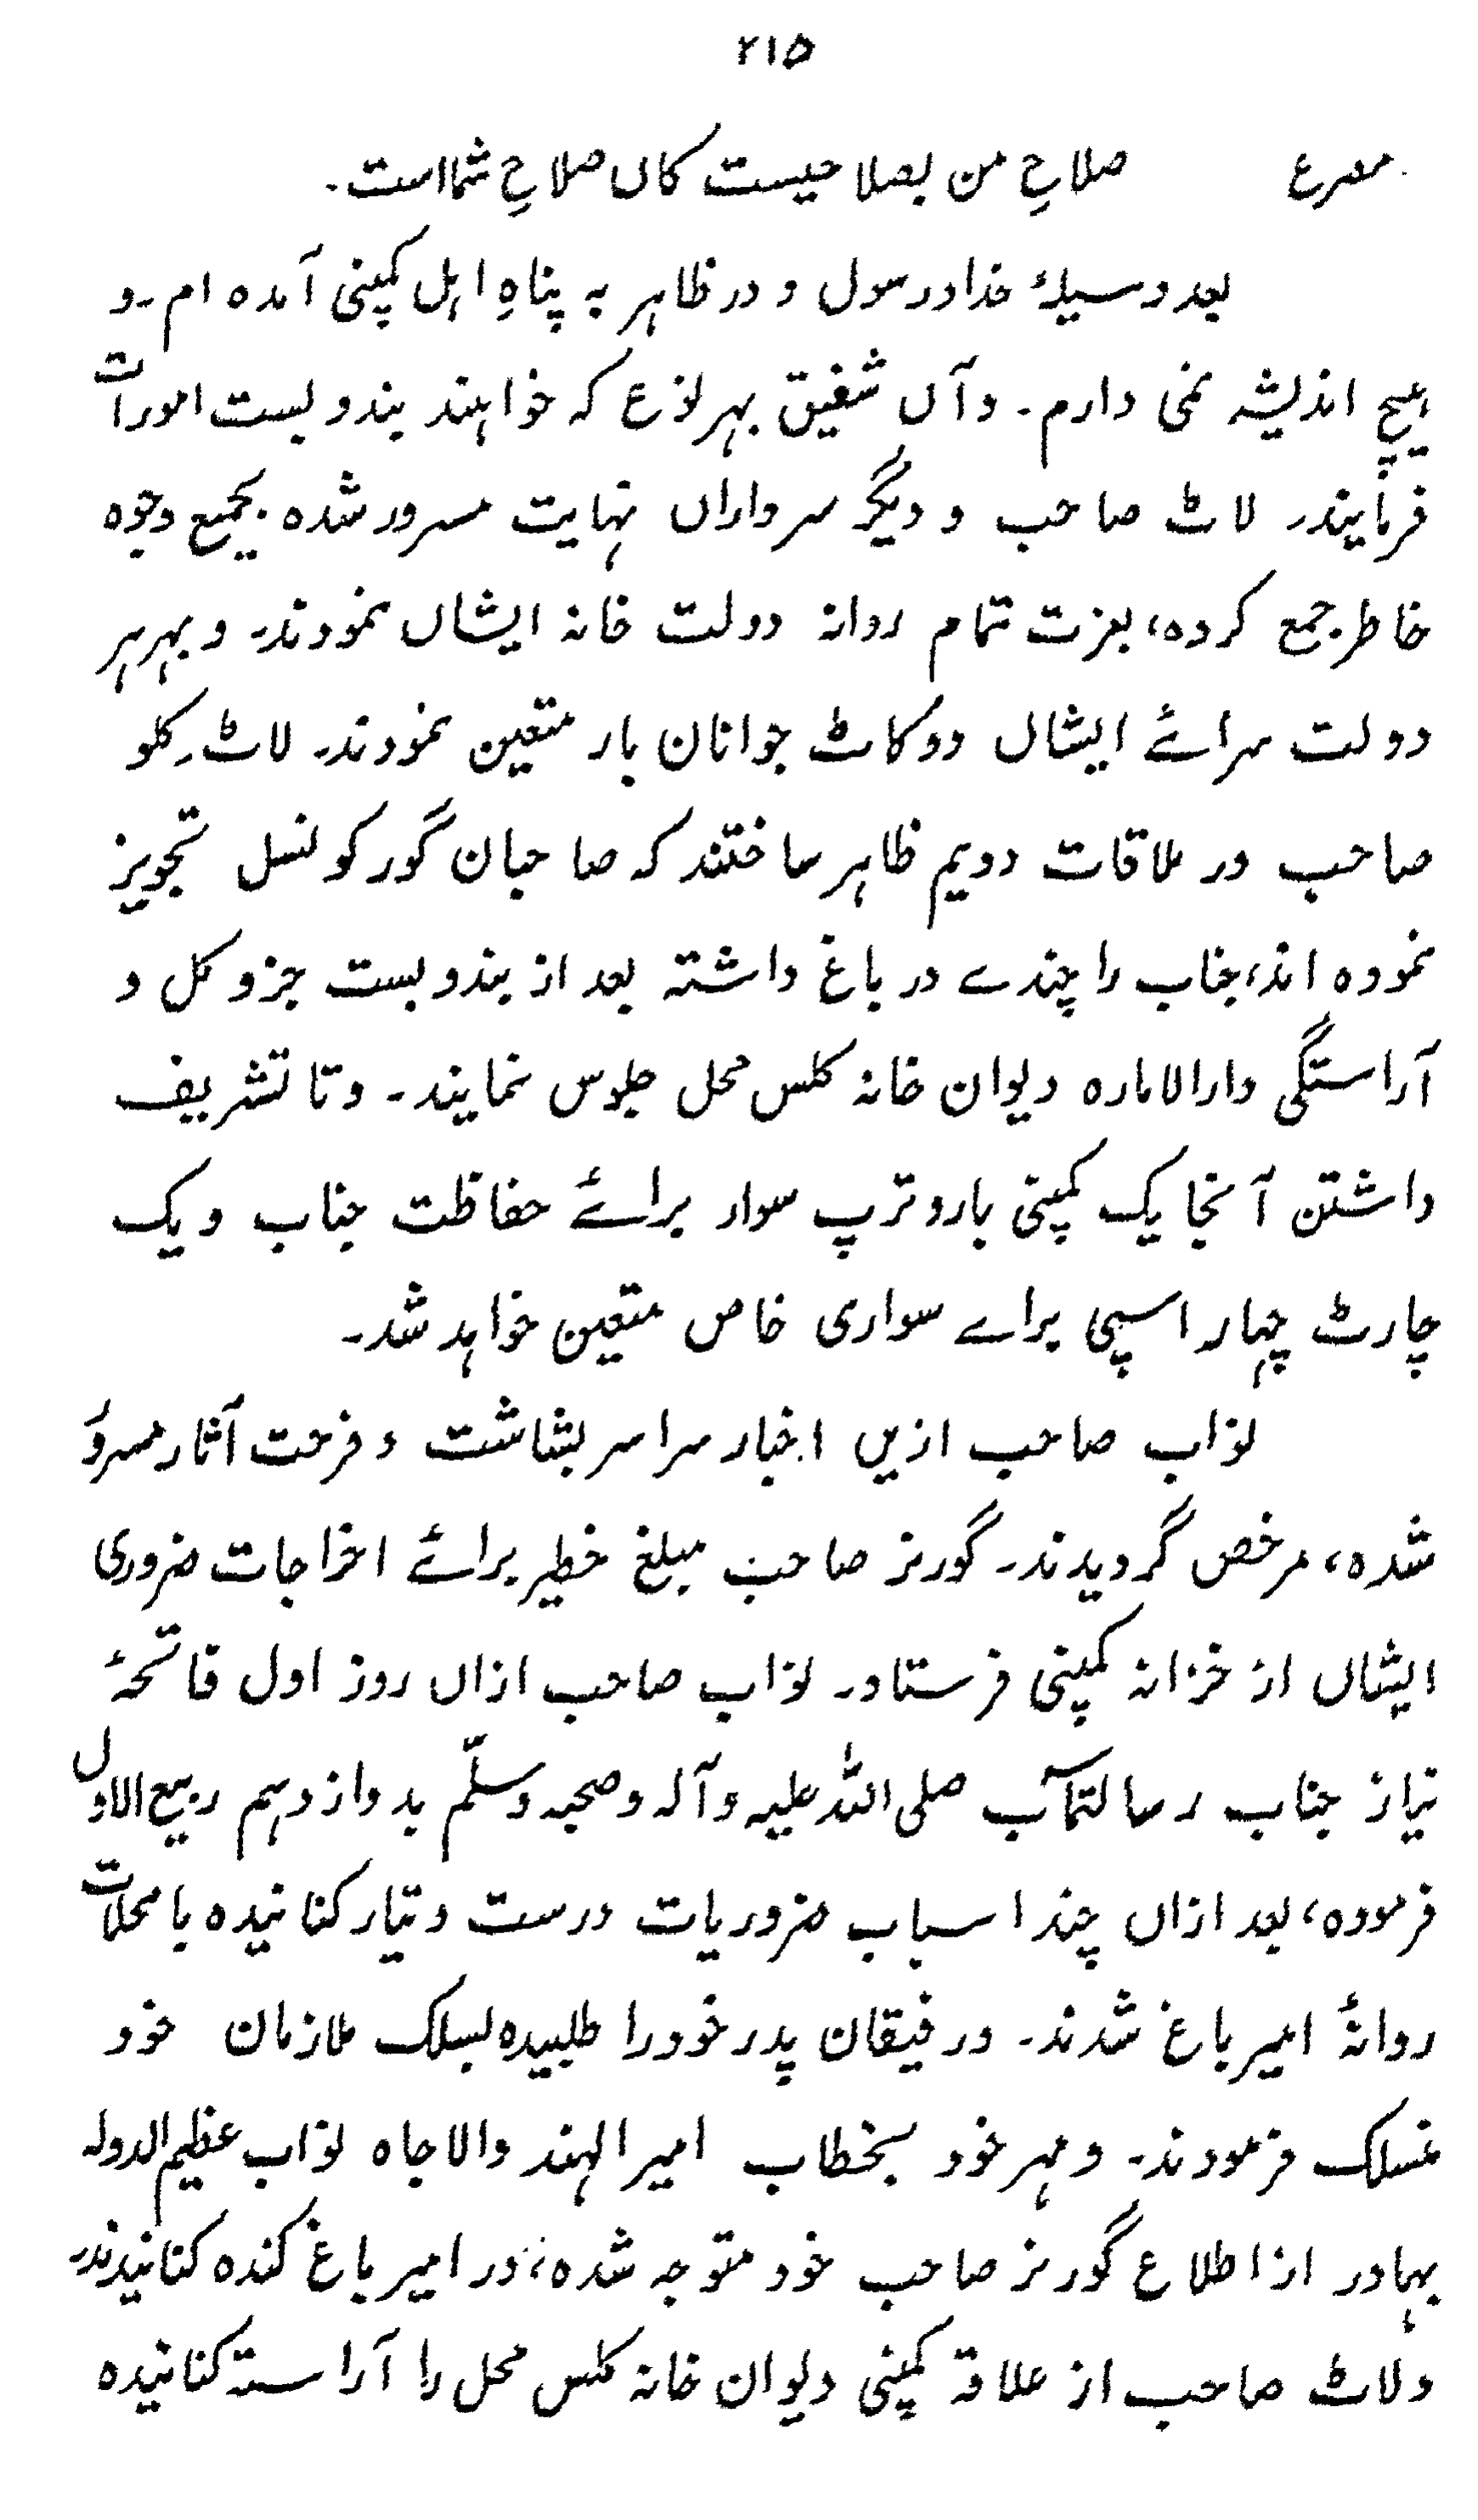 ۲۱۵
مصرع صلاحِ من بصلاحیست کاں صلاحِ شمااست۔
بعد وسیلۂ خدا و رسول و در ظاہر بہ پناہِ اہل کمپنی آمدہ ام۔ و
ہیچ اندیشہ نمی دارم۔ و آں شفیق بہر نوع کہ خواہند بندوبست امورات
فرمایند۔ لاٹ صاحب و دیگر سرداراں نہایت مسرور شدہ بجمیع وجوہ
خاطر جمع کردہ، بعزت تمام روانہ دولت خانہ ایشاں نمودند۔ و بہر ہر
دولت سرائے ایشاں دو کاٹ جوانان بار متعین نمودند۔ لاٹ کِلو
صاحب در ملاقات دویم ظاہر ساختند کہ صاحبان گور کونسل تجویز
نمودہ اند، جناب را چندے در باغ داشتہ بعد از بندوبست جزو کل و
آراستگی دارالامارہ دیوان خانہ کلس محل جلوس نمایند۔ و تا تشریف
داشتن آنجا یک کمپنی بار و ترپ سوار برائے حفاظت جناب و یک
چارٹ چہار اسپی براے سواری خاص متعین خواہد شد۔
نواب صاحب ازیں اخبار سراسر بشاشت و فرحت آثار مسرور
شدہ، مرخص گردیدند۔ گورنر صاحب مبلغ خطیر برائے اخراجات ضروری
ایشاں از خزانہ کمپنی فرستاد۔ نواب صاحب ازاں روز اول فاتحۂ
نیاز جناب رسالتمآب صلی اللہ علیہ وآلہ وصحبہ وسلّم بدوازدہم ربیع الاول
فرمودہ، بعد ازاں چند اسباب ضروریات درست و تیار کنانیدہ با محلات
روانۂ امیر باغ شدند۔ و رفیقان پدر خود را طلبیدہ بسلک ملازمان خود
منسلک فرمودند۔ و مہر خود بخطاب امیر الہند والا جاہ نواب عظیم الدولہ
بہادر از اطلاع گورنر صاحب خود متوجہ شدہ، در امیر باغ کندہ کنانیدند۔
و لاٹ صاحب از علاقہ کمپنی دیوان خانہ کلس محل را آراستہ کنانیدہ